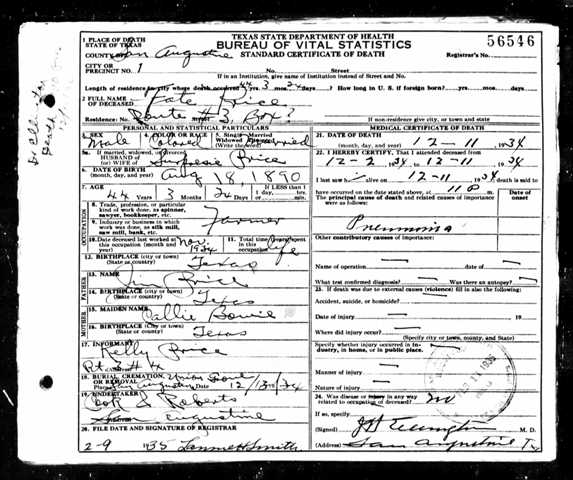 TEXAS STATE DEPARTMENT OF HEALTH
BUREAU OF VITAL STATISTICS
STANDARD CERTIFICATE OF DEATH
56546
1 PLACE OF DEATH
STATE OF TEXAS
COUNTY OF San Augustine
CITY OR
PRECINCT NO. 1 No. Street
Registrar's No.
If in an Institution, give name of Institution instead of Street and No.
Length of residence in city where death occurred 44 yrs. 3 mos. days? How long in U. S. if foreign born? yrs. mos. days
2 FULL NAME
OF DECEASED Price
Residence: No. Route #3, Box ? If non-residence give city, or town and state
PERSONAL AND STATISTICAL PARTICULARS
3. SEX Male 4. COLOR OR RACE Colored 5. Single Married Widowed Divorced (Write the word) Married
5a. If married, widowed, divorced,
HUSBAND OF
(or) WIFE OF Price
6. DATE OF BIRTH
(month, day, and year) Aug 18, 1890
7. AGE If LESS than 1
44 Years 3 Months Days day, hrs. or minutes
8. Trade, profession, or particular kind of work done, as spinner, sawyer, bookkeeper, etc. Farmer
9. Industry or business in which work was done, as silk mill, saw mill, bank, etc.
10. Date deceased last worked at this occupation (month and year) Nov. 1934 11. Total time (years) spent in this occupation Life
OCCUPATION
12. BIRTHPLACE (city or town)
(State or country) Texas
13. NAME Jim Price
14. BIRTHPLACE (city or town)
(State or country) Texas
FATHER
15. MAIDEN NAME Callie Bowie
16. BIRTHPLACE (city or town)
(State or country) Texas
MOTHER
17. INFORMANT Kelly Price
18. BURIAL, CREMATION OR REMOVAL
Place San Augustine Date 12/13/34
19. UNDERTAKER & Roberts
San Augustine
20. FILE DATE AND SIGNATURE OF REGISTRAR
2-9 1935 Smith
MEDICAL CERTIFICATE OF DEATH
21. DATE OF DEATH
(month, day, and year) 12-11 1934
22. I HEREBY CERTIFY, That I attended deceased from
12-2 1934 to 12-11 1934
I last saw h alive on 12-11 1934 death is said to
have occurred on the date stated above, at 11 P m.
The principal causes of death and related causes of importance were as follows: Date of onset
Pneumonia
Other contributory causes of importance:
Name of operation
What test confirmed diagnosis? Was there an autopsy?
23. If death was due to external causes (violence) fill in also the following:
Accident, suicide, or homicide?
Date of injury 19
Where did injury occur?
(Specify city or town, county, and State)
Specify whether injury occurred in industry, in home, or in public place.
Manner of injury
Nature of injury
24. Was disease or injury in any way related to occupation of deceased? no
If so, specify
(Signed) M. D.
(Address) San Augustine Tx